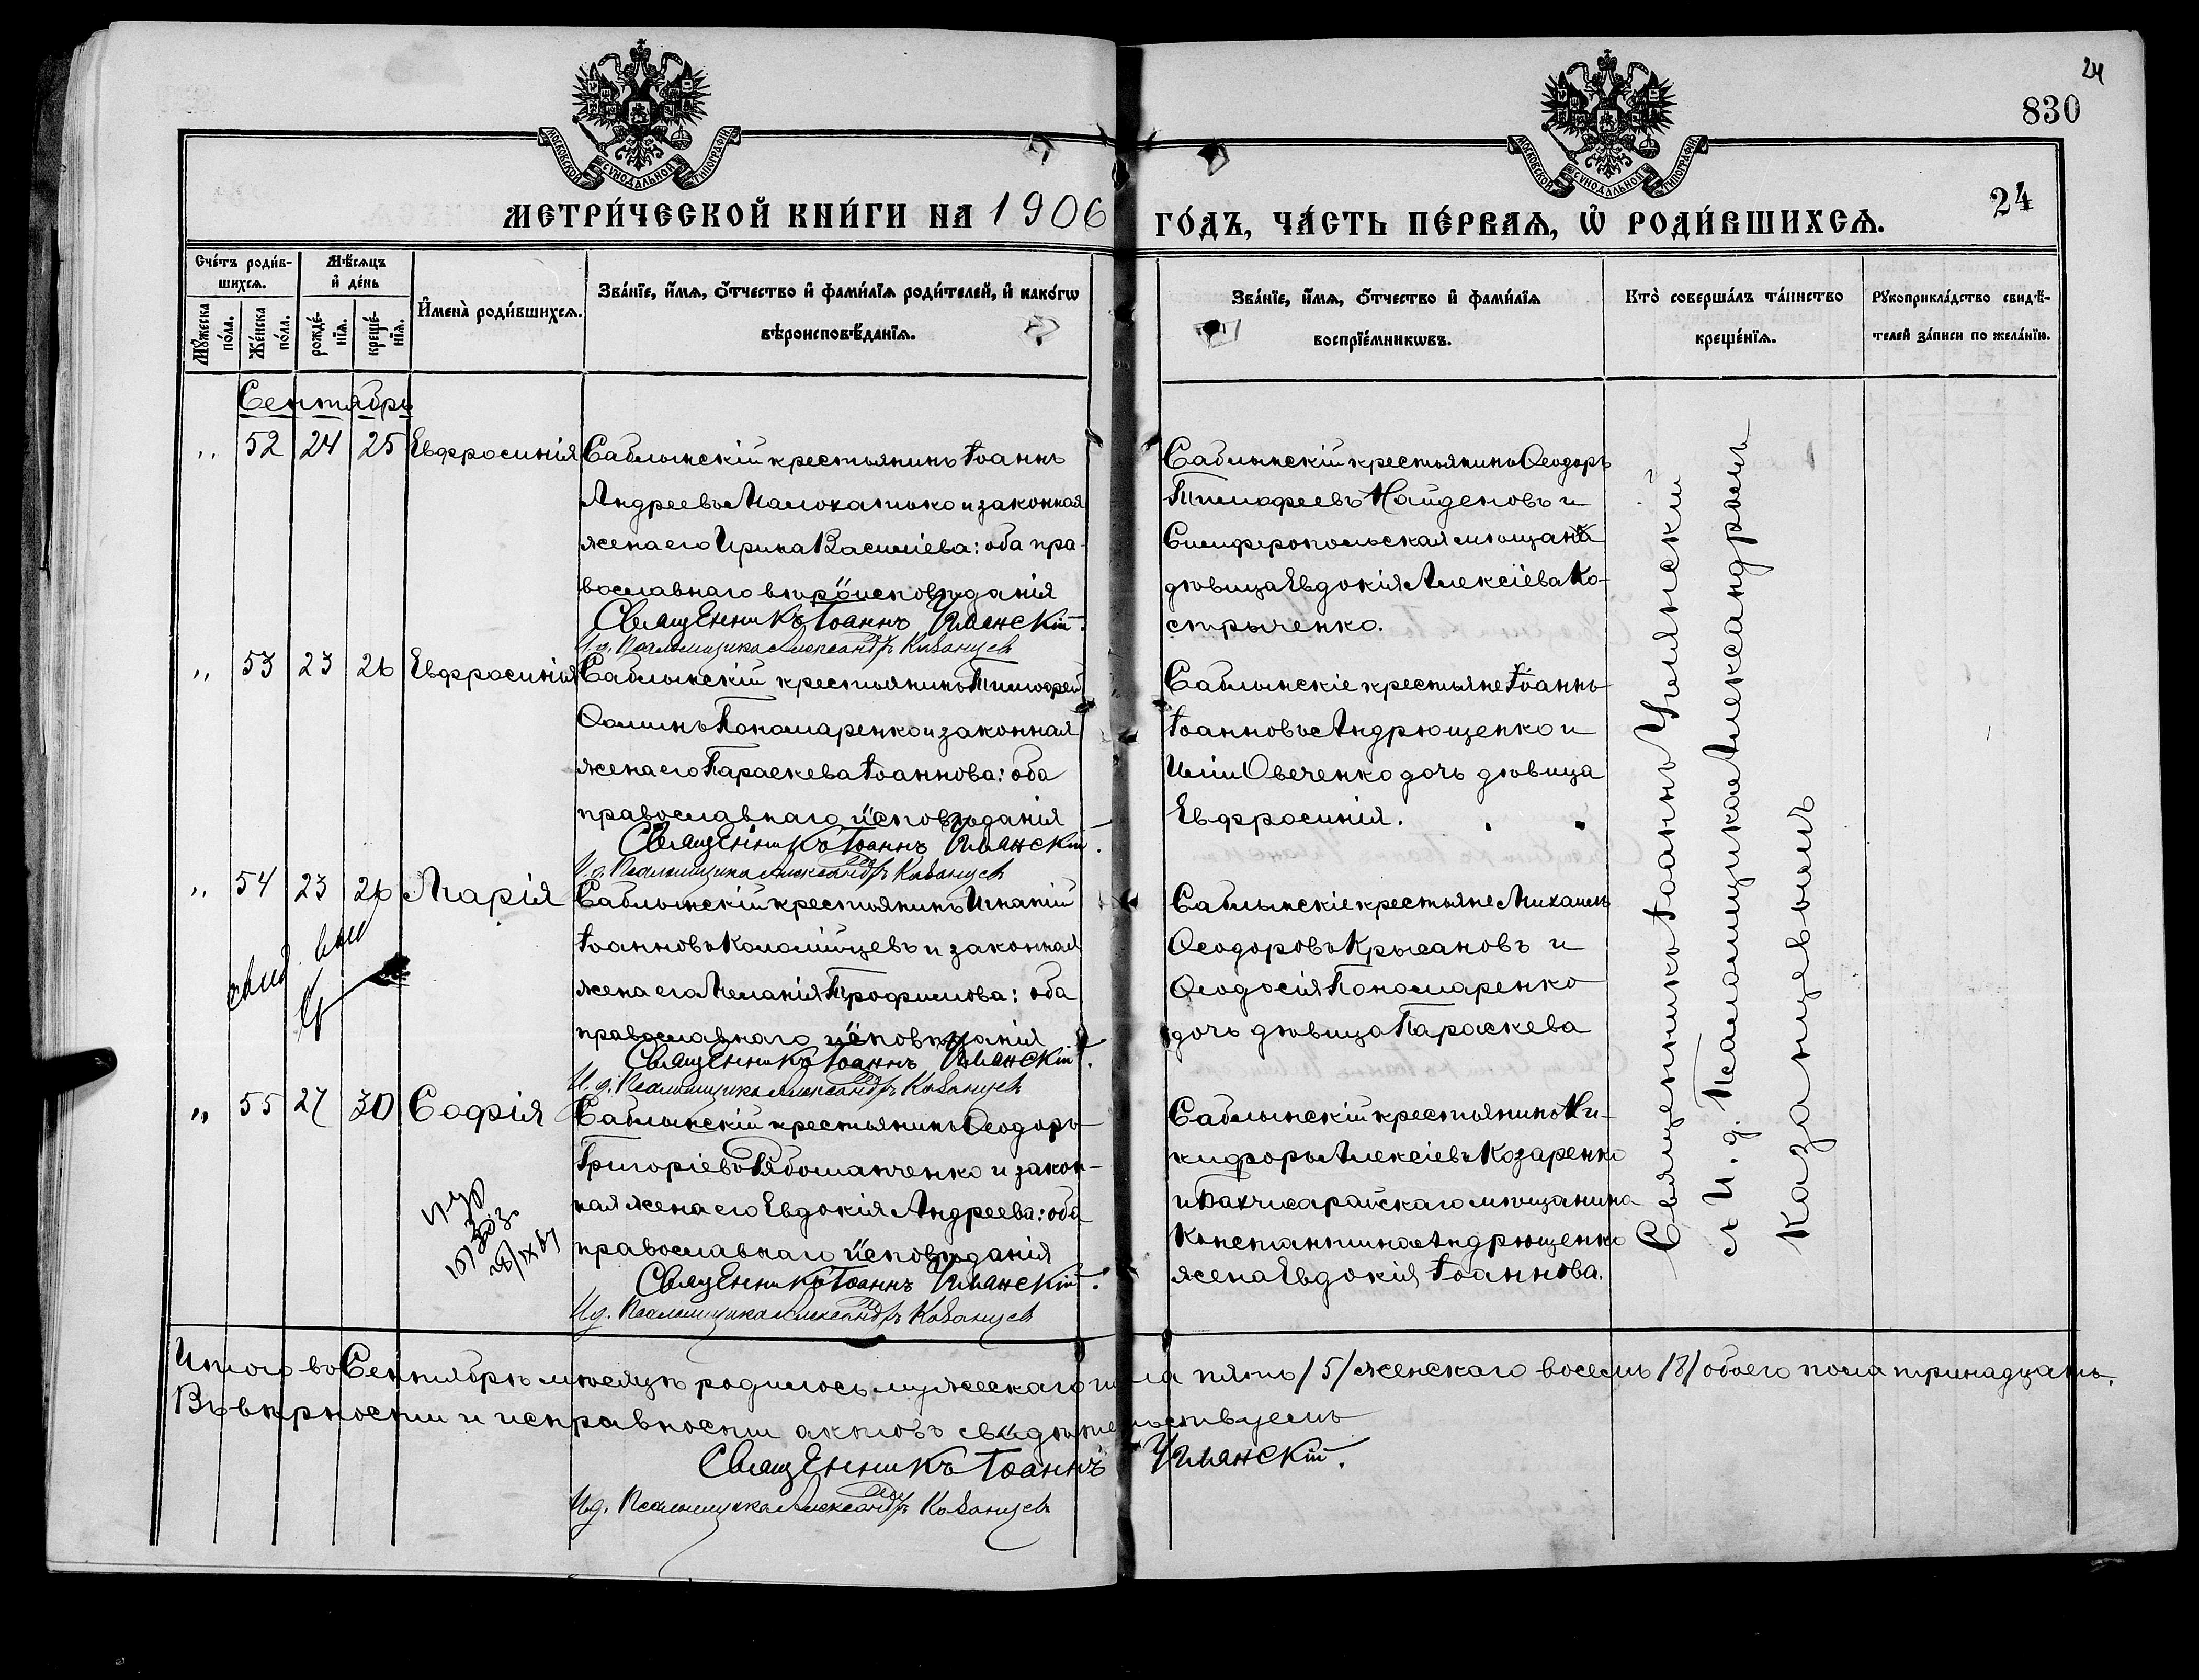 24
830
24
МОСКОВСКОЙ СѴНОДАЛЬНОЙ ТИПОГРАФІИ
МОСКОВСКОЙ СѴНОДАЛЬНОЙ ТИПОГРАФІИ
МЕТРИ́ЧЕСКОЙ КНИ́ГИ НА 1906 ГО́ДЪ, ЧА́СТЬ ПЕ́РВАѦ, Ѡ҆ РОДИ́ВШИХСѦ.
Сче́тъ роди́в-
шихсѧ.
Мꙋ́жеска по́ла.
Же́нска по́ла.
Мѣ́сѧцъ
и҆ де́нь
рожде́-
нїѧ.
креще́-
нїѧ.
И҆мена̀ роди́вшихсѧ.
Зва́нїе, и҆́мѧ, ѻ҆́тчество и҆ фами́лїѧ роди́телей, и҆ како́гѡ
вѣроисповѣ́данїѧ.
Зва́нїе, и҆́мѧ, ѻ҆́тчество и҆ фами́лїѧ
воспрїе́мникѡвъ.
Кто̀ соверша́лъ та́инство
креще́нїѧ.
Рꙋкоприкла́дство свидѣ́-
телей за́писи по жела́нїю.
Сентябрь
" 52 24 25 Евфросинія
Саблынскій крестьянинъ Іоаннъ
Андреевъ Малохатько и законная
жена его Ирина Василіева: оба пра-
вославнаго вѣроисповѣданія
Священникъ Іоаннъ Уманскій.
И. д. Псаломщика Александръ Казанцев
Саблынскій крестьянинъ Ѳеодоръ
Тимофеевъ Найденовъ и
Симферопольская мѣщанка
дѣвица Евдокія Алексіева Ко-
стрыченко.
" 53 23 26 Евфросинія
Саблынскій крестьянинъ Тимофей
Ѳоминъ Пономаренко и законная
жена его Параскева Іоаннова: оба
православнаго исповѣданія
Священникъ Іоаннъ Уманскій.
И. д. Псаломщика Александръ Казанцев
Саблынскіе крестьяне Іоаннъ
Іоанновъ Андрющенко и
Иліи Овеченко дочь дѣвица
Евфросинія.
" 54 23 26 Марія
Саблынскій крестьянинъ Игнатій
Іоанновъ Коломійцевъ и законная
жена его Меланія Трофимова: оба
православнаго исповѣданія
Священникъ Іоаннъ Уманскій.
И. д. Псаломщика Александръ Казанцев
Саблынскіе крестьяне Михаилъ
Ѳеодоровъ Крысановъ и
Ѳеодосія Пономаренко
дочь дѣвица Параскева
" 55 27 30 Софія
Саблынскій крестьянинъ Ѳеодоръ
Григоріевъ Рябошапченко и закон-
ная жена его Евдокія Андреева: оба
православнаго исповѣданія
Священникъ Іоаннъ Уманскій.
И. д. Псаломщика Александръ Казанцев
Саблынскій крестьянинъ Ни-
кифоръ Алексіевъ Козаренко
и Бахчисарайскаго мѣщанина
Константина Андрющенко
жена Евдокія Іоаннова.
Священникъ Іоаннъ Уманскій
съ И. д. Псаломщика Александромъ
Казанцевымъ
Итого въ Сентябрѣ мѣсяцѣ родилось мужескаго пола пять /5/ женскаго восемь /8/ обоего пола тринадцать.
Въ вѣрности и исправности актовъ свидѣтельствуемъ
Священникъ Іоаннъ Уманскій.
И. д. Псаломщика Александръ Казанцев